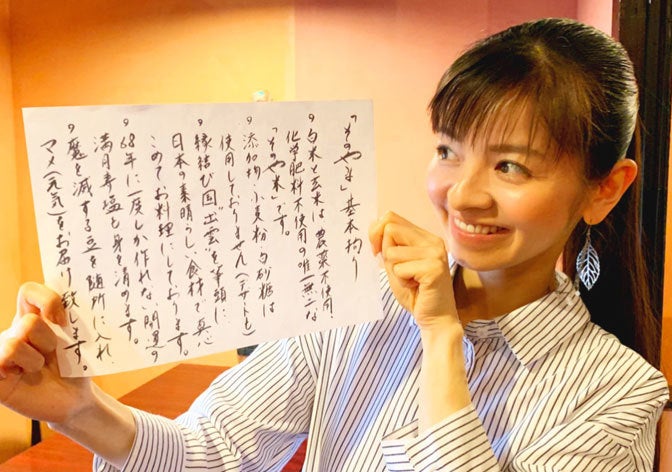 「そのや」基本拘り
9 白米と玄米は、農薬不使用、
化学肥料不使用の唯一無二な
「そのや米」です。
9 添加物・小麦粉・白砂糖は
使用しておりません(デザートも)
9 縁結び国"出雲"を筆頭に
日本の素晴らしい食材で真心
こめてお料理にしております。
9 68年に一度しか作れない、開運の
満月寿塩と身を清めます。
9 魔を滅する豆を随所に入れ、
マメ(元気)をお届け致します。